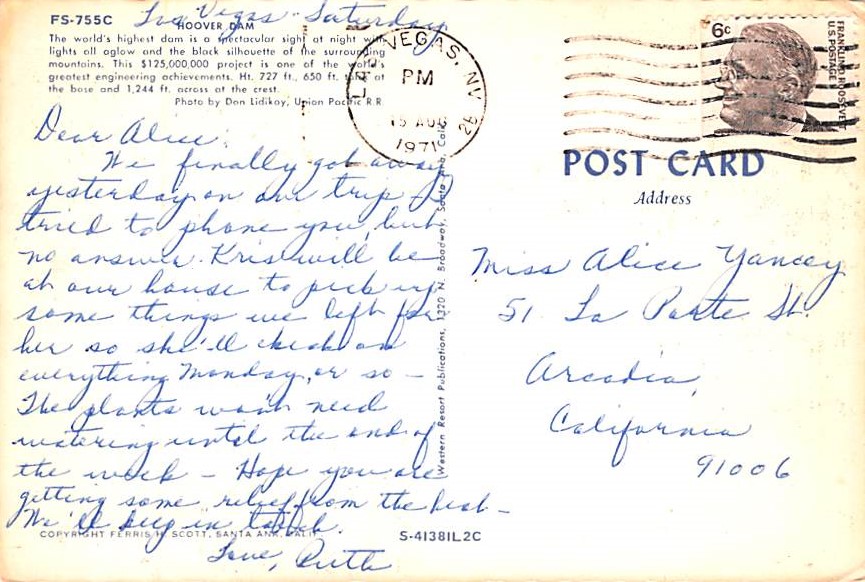 Las Vegas - Saturday
FS-755C
HOOVER DAM
The world's highest dam is a spectacular sight at night with
lights all aglow and the black silhouette of the surrounding
mountains. This $125,000,000 project is one of the world's
greatest engineering achievements. Ht. 727 ft., 650 ft. thick at
the base and 1,244 ft. across at the crest.
Photo by Don Lidikay, Union Pacific R.R
LAS VEGAS, NV
PM
15 AUG
1971
2B
6c
FRANKLIN D. ROOSEVELT
U.S. POSTAGE
Dear Alice:
We finally got away
yesterday on our trip - I
tried to phone you, but
no answer. Kris will be
at our house to pick up
some things we left for
her so she'll check on
everything Monday, or so -
The plants won't need
watering until the end of
the week - Hope you are
getting some relief from the heat -
We'll keep in touch.
Love, Ruth
Western Resort Publications, 1320 N. Broadway, Santa Ana, Calif.
POST CARD
Address
Miss Alice Yancey
51 La Porte St.
Arcadia,
California
91006
COPYRIGHT FERRIS H. SCOTT, SANTA ANA, CALIF.
S-41381L2C